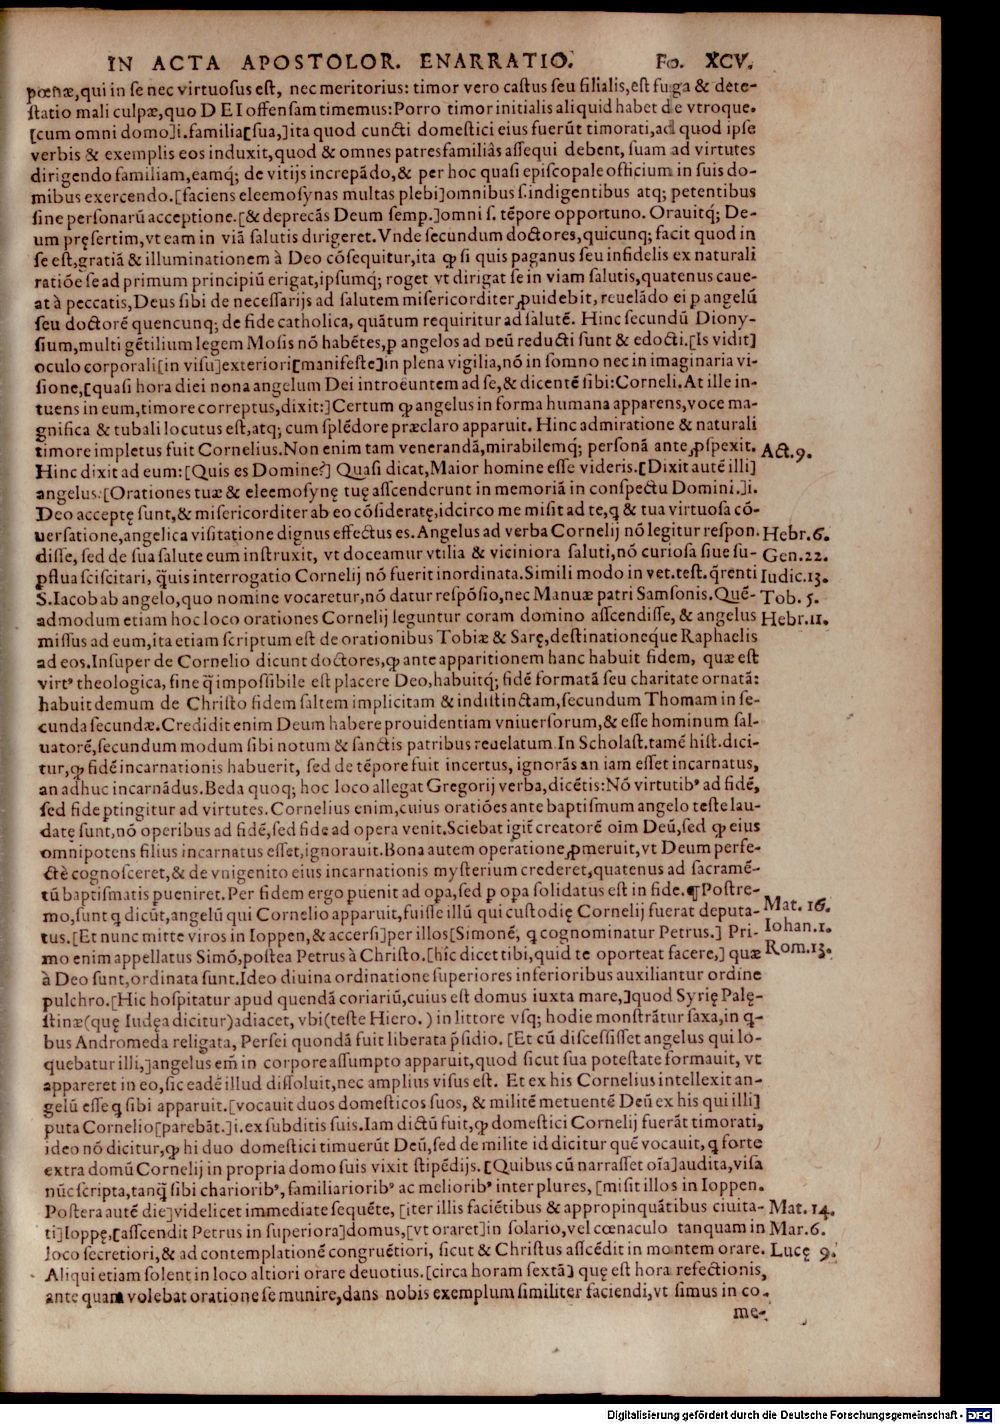 IN ACTA APOSTOLOR. ENARRATIO. Fo. XCV.
pœnæ,qui in se nec virtuosus est, nec meritorius: timor vero castus seu filialis,est fuga & dete-
statio mali culpæ,quo DEI offensam timemus:Porro timor initialis aliquid habet de vtroque.
[cum omni domo]i.familia[sua,]ita quod cuncti domestici eius fuerūt timorati,ad quod ipse
verbis & exemplis eos induxit,quod & omnes patresfamiliâs assequi debent, suam ad virtutes
dirigendo familiam,eamq; de vitijs increpādo,& per hoc quasi episcopale officium in suis do-
mibus exercendo.[faciens eleemosynas multas plebi]omnibus s.indigentibus atq; petentibus
sine personarū acceptione.[& deprecās Deum semp.]omni s. tēpore opportuno. Orauitq; De-
um pręsertim,vt eam in viā salutis dirigeret.Vnde secundum doctores,quicunq; facit quod in
se est,gratiā & illuminationem à Deo cōsequitur,ita ꝙ si quis paganus seu infidelis ex naturali
ratiōe se ad primum principiū erigat,ipsumq; roget vt dirigat se in viam salutis,quatenus caue-
at à peccatis,Deus sibi de necessarijs ad salutem misericorditer ꝓuidebit, reuelādo ei p angelū
seu doctorē quencunq; de fide catholica, quātum requiritur ad salutē. Hinc secundū Diony-
sium,multi gētilium legem Mosis nō habētes,p angelos ad Deū reducti sunt & edocti.[Is vidit]
oculo corporali[in visu]exteriori[manifeste]in plena vigilia,nō in somno nec in imaginaria vi-
sione,[quasi hora diei nona angelum Dei introëuntem ad se,& dicentē sibi:Corneli.At ille in-
tuens in eum,timore correptus,dixit:]Certum ꝙ angelus in forma humana apparens,voce ma-
gnifica & tubali locutus est,atq; cum splēdore præclaro apparuit. Hinc admiratione & naturali
timore impletus fuit Cornelius.Non enim tam venerandā,mirabilemq; personā ante ꝓspexit. Act.9.
Hinc dixit ad eum:[Quis es Domine?] Quasi dicat,Maior homine esse videris.[Dixit autē illi]
angelus.[Orationes tuæ & eleemosynę tuę asscenderunt in memoriā in conspectu Domini.]i.
Deo acceptę sunt,& misericorditer ab eo cōsideratę,idcirco me misit ad te,q & tua virtuosa cō-
uersatione,angelica visitatione dignus effectus es.Angelus ad verba Cornelij nō legitur respon Hebr.6.
disse, sed de sua salute eum instruxit, vt doceamur vtilia & viciniora saluti,nō curiosa siue su- Gen.22.
pflua sciscitari, q̄uis interrogatio Cornelij nō fuerit inordinata.Simili modo in vet.test.q̄renti Iudic.13.
S.Iacob ab angelo,quo nomine vocaretur,nō datur respōsio,nec Manuæ patri Samsonis.Quē- Tob. 5.
admodum etiam hoc loco orationes Cornelij leguntur coram domino asscendisse, & angelus Hebr.11.
missus ad eum,ita etiam scriptum est de orationibus Tobiæ & Sarę,destinationeque Raphaelis
ad eos.Insuper de Cornelio dicunt doctores,ꝙ ante apparitionem hanc habuit fidem, quæ est
virtꝰ theologica, sine q̄ impossibile est placere Deo,habuitq; fidē formatā seu charitate ornatā:
habuit demum de Christo fidem saltem implicitam & indistinctam,secundum Thomam in se-
cunda secundæ.Credidit enim Deum habere prouidentiam vniuersorum,& esse hominum sal-
uatorē,secundum modum sibi notum & sanctis patribus reuelatum.In Scholast.tamē hist.dici-
tur,ꝙ fidē incarnationis habuerit, sed de tēpore fuit incertus, ignorās an iam esset incarnatus,
an adhuc incarnādus.Beda quoq; hoc loco allegat Gregorij verba,dicētis:Nō virtutibꝰ ad fidē,
sed fide ptingitur ad virtutes.Cornelius enim,cuius oratiōes ante baptismum angelo teste lau-
datę sunt,nō operibus ad fidē,sed fide ad opera venit.Sciebat igit̄ creatorē oīm Deū,sed ꝙ eius
omnipotens filius incarnatus esset,ignorauit.Bona autem operatione ꝓmeruit,vt Deum perfe-
ctè cognosceret,& de vnigenito eius incarnationis mysterium crederet,quatenus ad sacramē-
tū baptismatis pueniret.Per fidem ergo puenit ad opa,sed p opa solidatus est in fide.¶Postre-
mo,sunt q dicūt,angelū qui Cornelio apparuit,fuisse illū qui custodię Cornelij fuerat deputa- Mat. 16.
tus.[Et nunc mitte viros in Ioppen,& accersi]per illos[Simonē, q cognominatur Petrus.] Pri- Iohan.1.
mo enim appellatus Simō,postea Petrus à Christo.[hic dicet tibi,quid te oporteat facere,] quæ Rom.13.
à Deo sunt,ordinata sunt.Ideo diuina ordinatione superiores inferioribus auxiliantur ordine
pulchro.[Hic hospitatur apud quendā coriariū,cuius est domus iuxta mare,]quod Syrię Palę-
stinæ(quę Iudęa dicitur)adiacet, vbi(teste Hiero.) in littore vsq; hodie monstrātur saxa,in q-
bus Andromeda religata, Persei quondā fuit liberata p̄sidio. [Et cū discessisset angelus qui lo-
quebatur illi,]angelus em̄ in corpore assumpto apparuit,quod sicut sua potestate formauit, vt
appareret in eo,sic eadē illud dissoluit,nec amplius visus est. Et ex his Cornelius intellexit an-
gelū esse q sibi apparuit.[vocauit duos domesticos suos, & militē metuentē Deū ex his qui illi]
puta Cornelio[parebāt.]i.ex subditis suis.Iam dictū fuit,ꝙ domestici Cornelij fuerāt timorati,
ideo nō dicitur,ꝙ hi duo domestici timuerūt Deū,sed de milite id dicitur quē vocauit, q forte
extra domū Cornelij in propria domo suis vixit stipēdijs.[Quibus cū narrasset oīa]audita,visa
nūc scripta,tanq̄ sibi chariorib', familiariorib' ac meliorib' inter plures, [misit illos in Ioppen.
Postera autē die]videlicet immediate sequēte, [iter illis faciētibus & appropinquātibus ciuita- Mat. 14.
ti]Ioppę,[asscendit Petrus in superiora]domus,[vt oraret]in solario,vel cœnaculo tanquam in Mar.6.
loco secretiori,& ad contemplationē congruētiori, sicut & Christus asscēdit in montem orare. Lucę 9.
Aliqui etiam solent in loco altiori orare deuotius.[circa horam sextā] quę est hora refectionis,
ante quam volebat oratione se munire,dans nobis exemplum similiter faciendi,vt simus in co-
me-
Digitalisierung gefördert durch die Deutsche Forschungsgemeinschaft - DFG